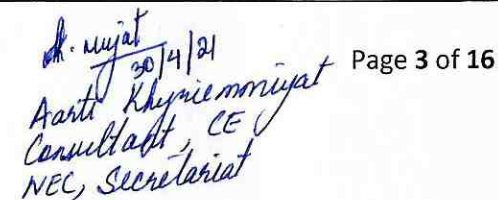 A. Mujat
30/4/21
Aarti Khyriemmujat
Consultant, CE
NEC, Secretariat
Page 3 of 16